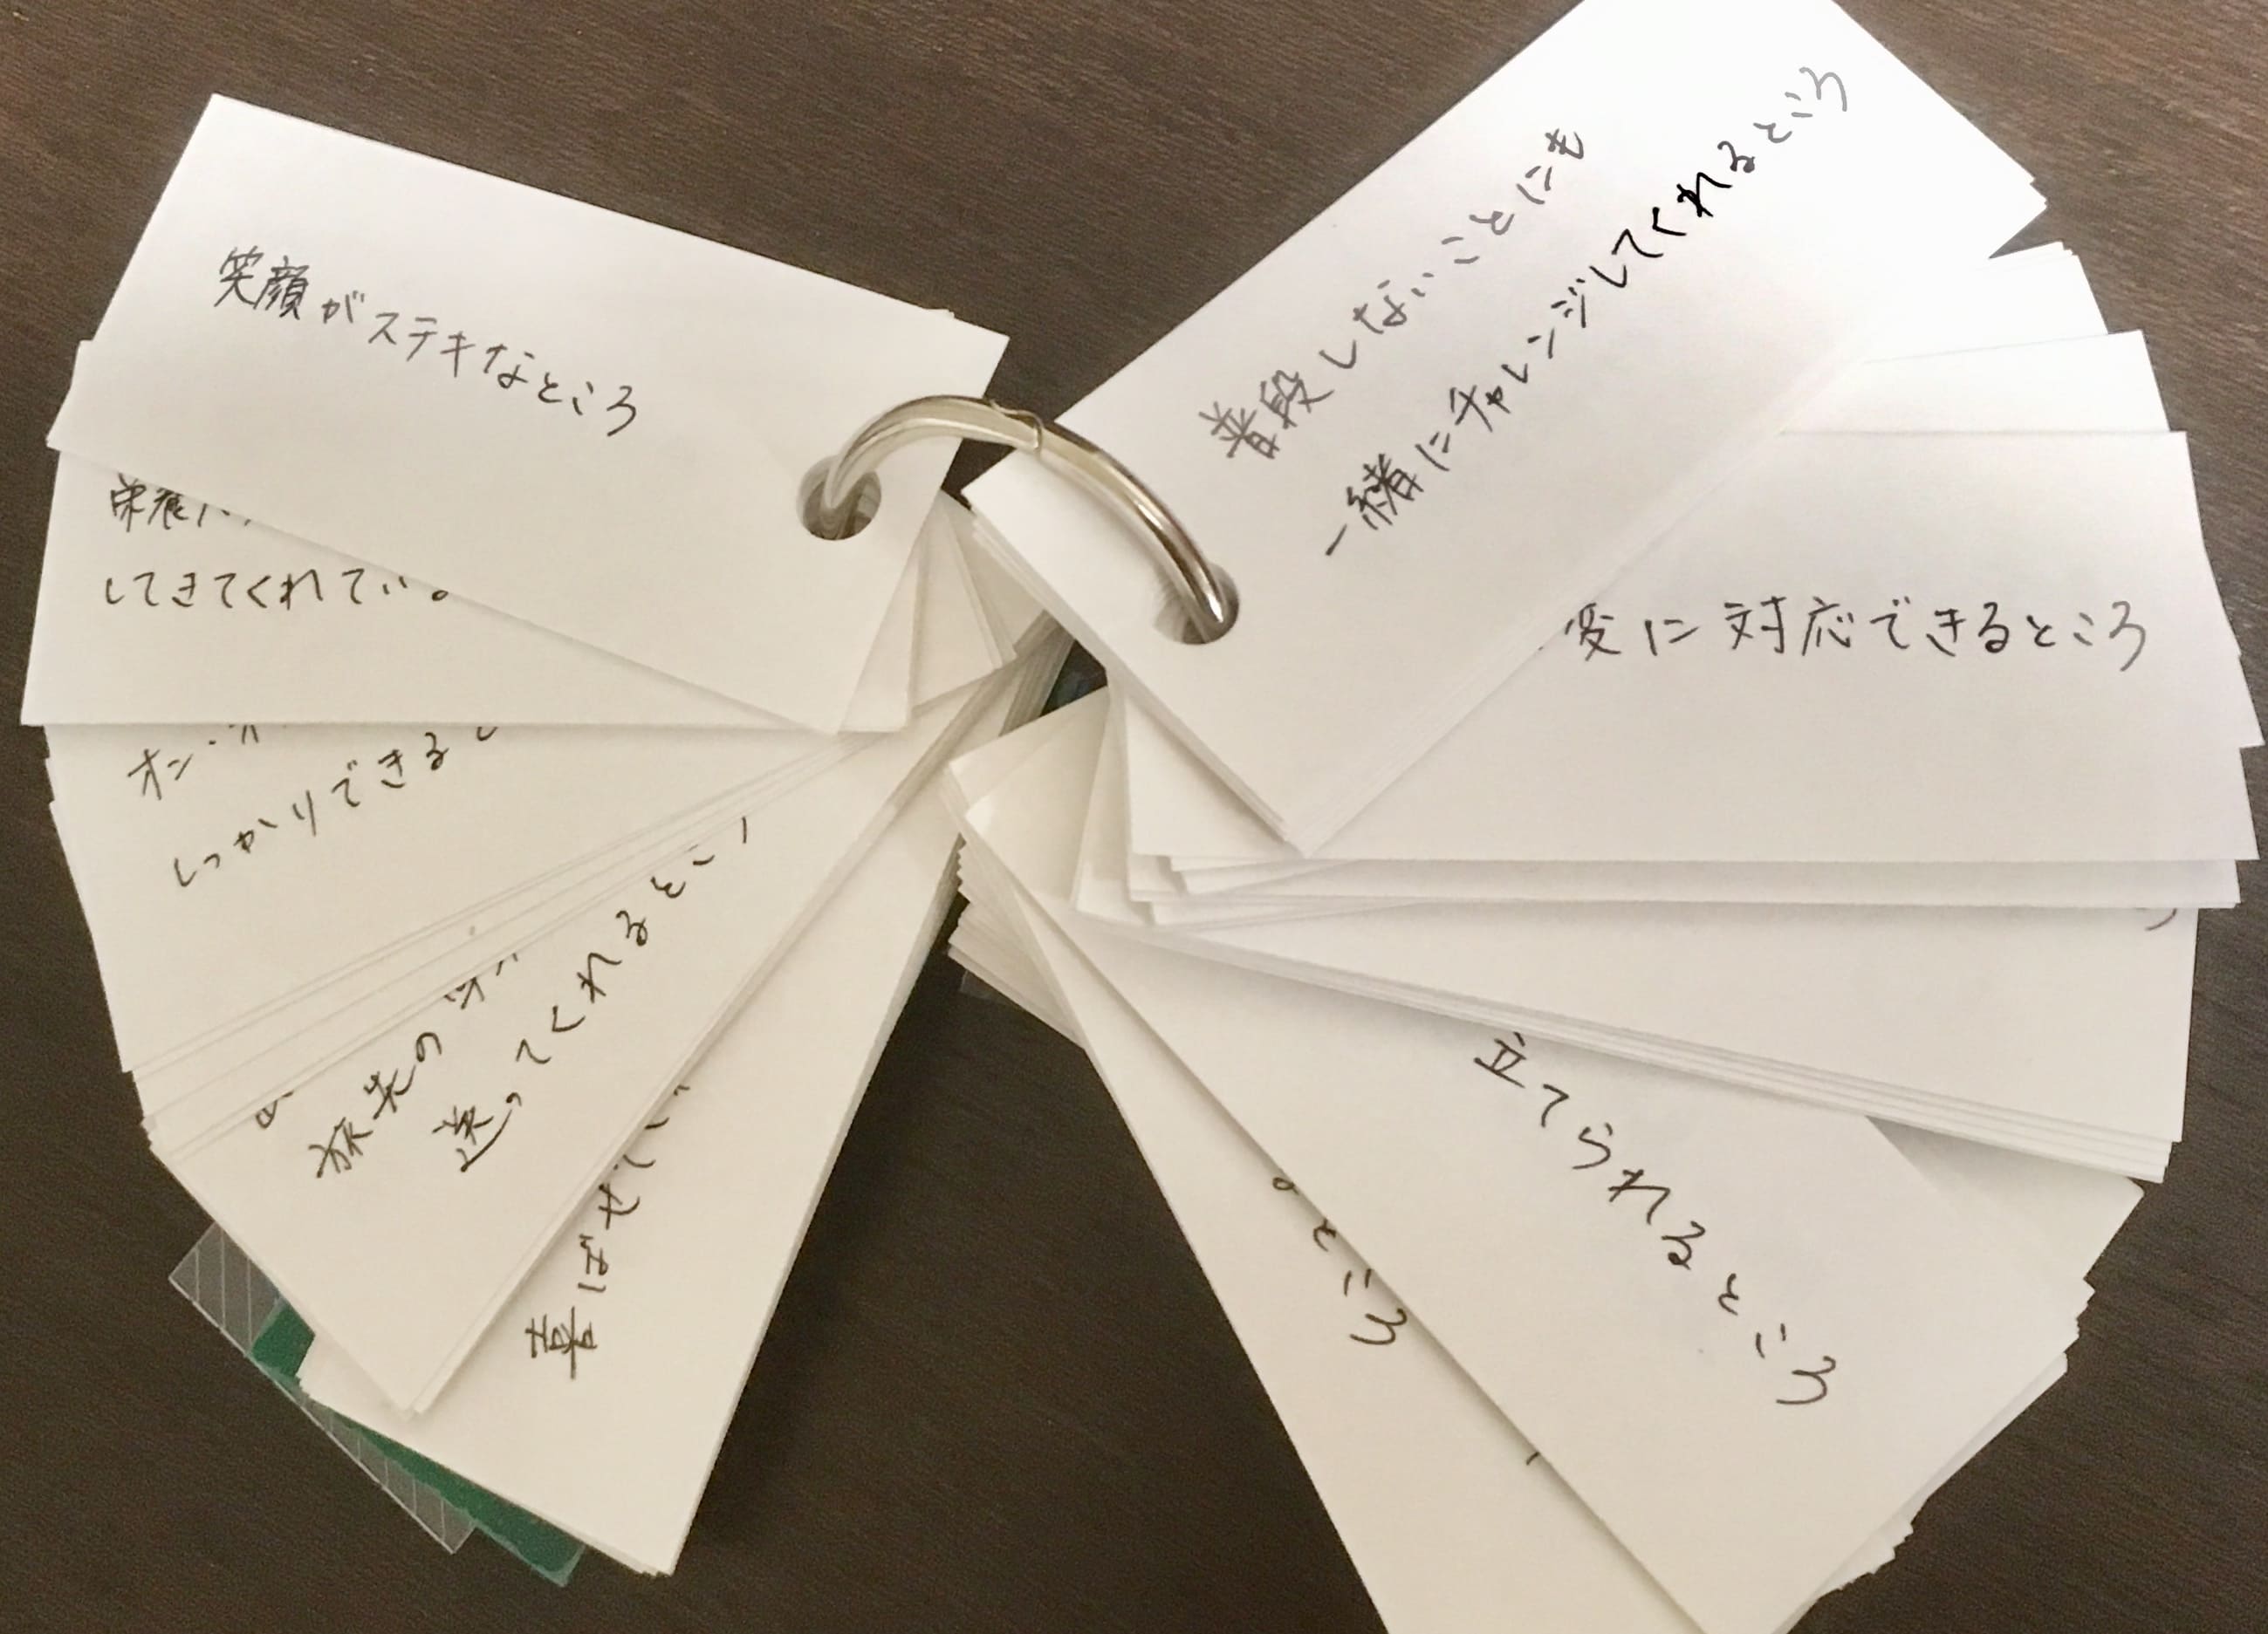 笑顔がステキなところ
栄養
してきてくれてい
オン・オ
しっかりできると
旅先の
送ってくれるとこ
喜ばせ
普段しないことにも
一緒にチャレンジしてくれるところ
変に対応できるところ
立てられるところ
ところ